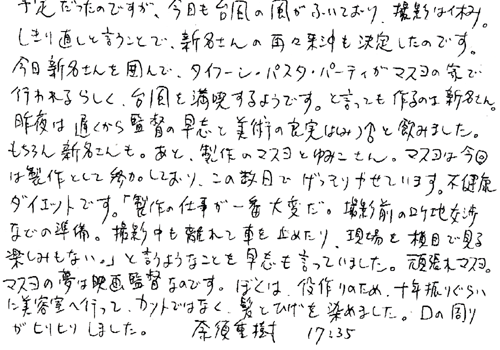 予定だったのですが、今日も台風の風がふいており、撮影は休み。
しきり直しと言うことで、新名さんの再々来沖も決定したのです。
今日新名さんを囲んで、タイフーン・パスタ・パーティがマスヨの家で
行われるらしく、台風を満喫するようです。と言っても作るのは新名さん。
昨夜は遅くから監督の早志と美術の良実(よしみ)君と飲みました。
もちろん新名さんも。あと、製作のマスヨとゆみこさん。マスヨは今回
は製作として参加しており、この数日でげっそりやせています。不健康
ダイエットです。「製作の仕事が一番大変だ。撮影前のロケ地交渉
などの準備。撮影中も離れて車を止めたり、現場を横目で見る
楽しみもない。」と言うようなことを早志も言っていました。頑張れマスヨ。
マスヨの夢は映画監督なのです。ぼくは、役作りのため、十年振りぐらい
に美容室へ行って、カットではなく、髪とひげを染めました。口の周り
がヒリヒリしました。 奈須重樹 17:35